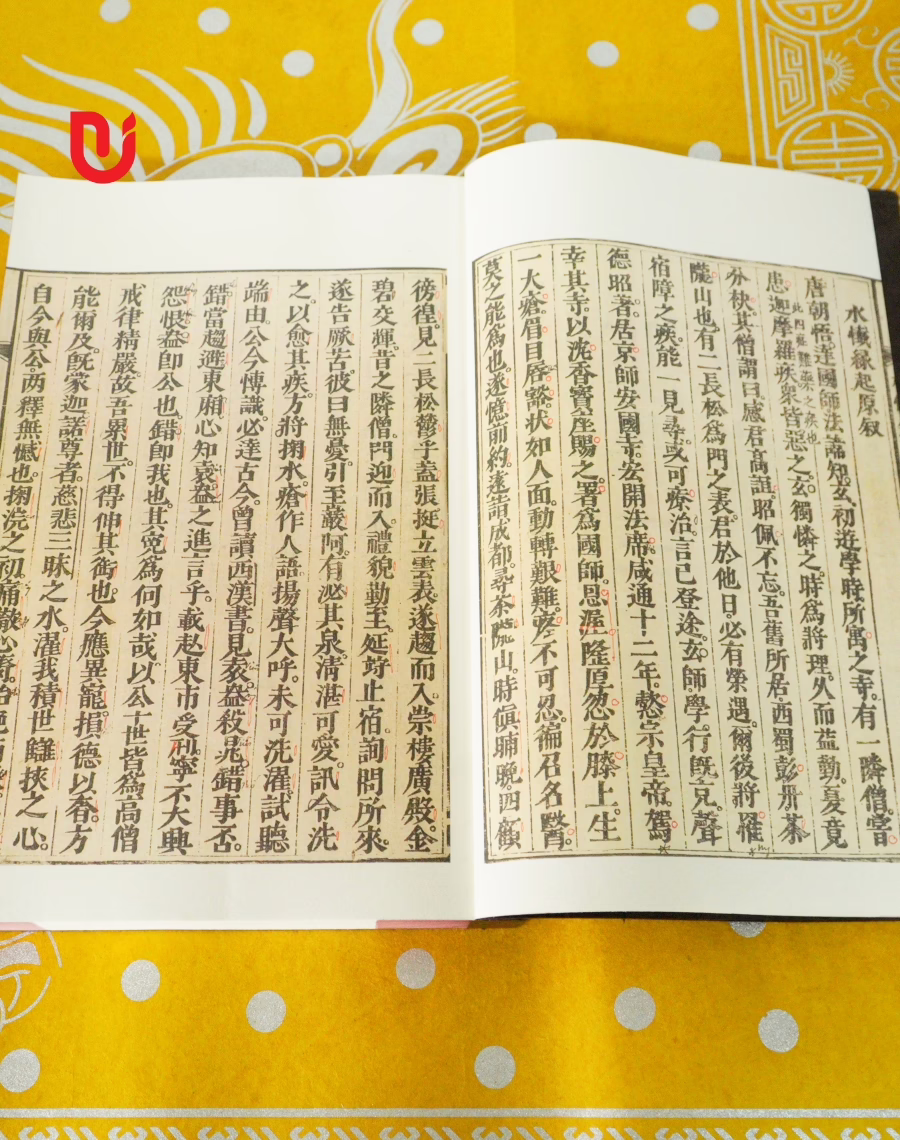 水懺緣起原叙
唐朝悟達國師法諱知玄初遊學時所寓之寺。有一隣僧嘗
患迦摩羅疾衆皆惡之。玄獨憐之。時爲將理。久而益勤。夏竟
此四並難藥之疾也
分袂。其僧謂曰。感君高誼。昭佩不忘。吾舊所居西蜀彭州茶
隴山也。有二長松爲門之表。君於他日。必有榮遇。爾後將罹
宿障之疾。能一見尋。或可療治。言已登途。玄師學行旣克聲
德昭著。居京師安國寺。宏開法席。咸通十二年。懿宗皇帝。駕
幸其寺。以沈香寶座賜之。署爲國師。恩渥隆厚。忽於膝上。生
一大瘡。眉目唇豁。状如人面。動轉艱難。疼不可忍。徧召名醫。
莫之能爲也。遂憶前約。遠詣成都。尋茶隴山。時愼脯晚。四顧
徬徨。見二長松欝乎葢張挺立雲表。遂趨而入。崇樓廣殿。金
碧交輝。昔之隣僧。門迎而入。禮貌勤至。延竚止宿。詢問所來。
遂告厥苦。彼曰無憂。引至巖阿。有泌其泉清湛可愛。訊令洗
之。以愈其疾。方將掬水。瘡作人語揚聲大呼。未可洗濯。試聽
端由。公今博識。必達古今。曾讀西漢書。見袁盎殺晁錯事否。
錯當趨避東廂。心知袁盎之進言乎。載赴東市受刑。寧不大興
怨恨。盎卽公也。錯卽我也。其寃爲何如哉。以公十世皆爲高僧
戒律精嚴。故吾累世。不得伸其銜也。今應異寵。損德以奢。方
能術及。旣蒙迦諾尊者。慈悲三昧之水。濯我積世讎挾之心。
自今與公。两釋無憾也。掬浣之初。痛徹心